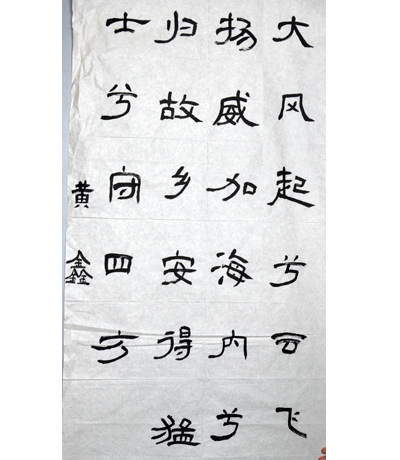 大风起兮云飞
扬威加海内兮
归故乡安得猛
士兮守四方
黄鑫